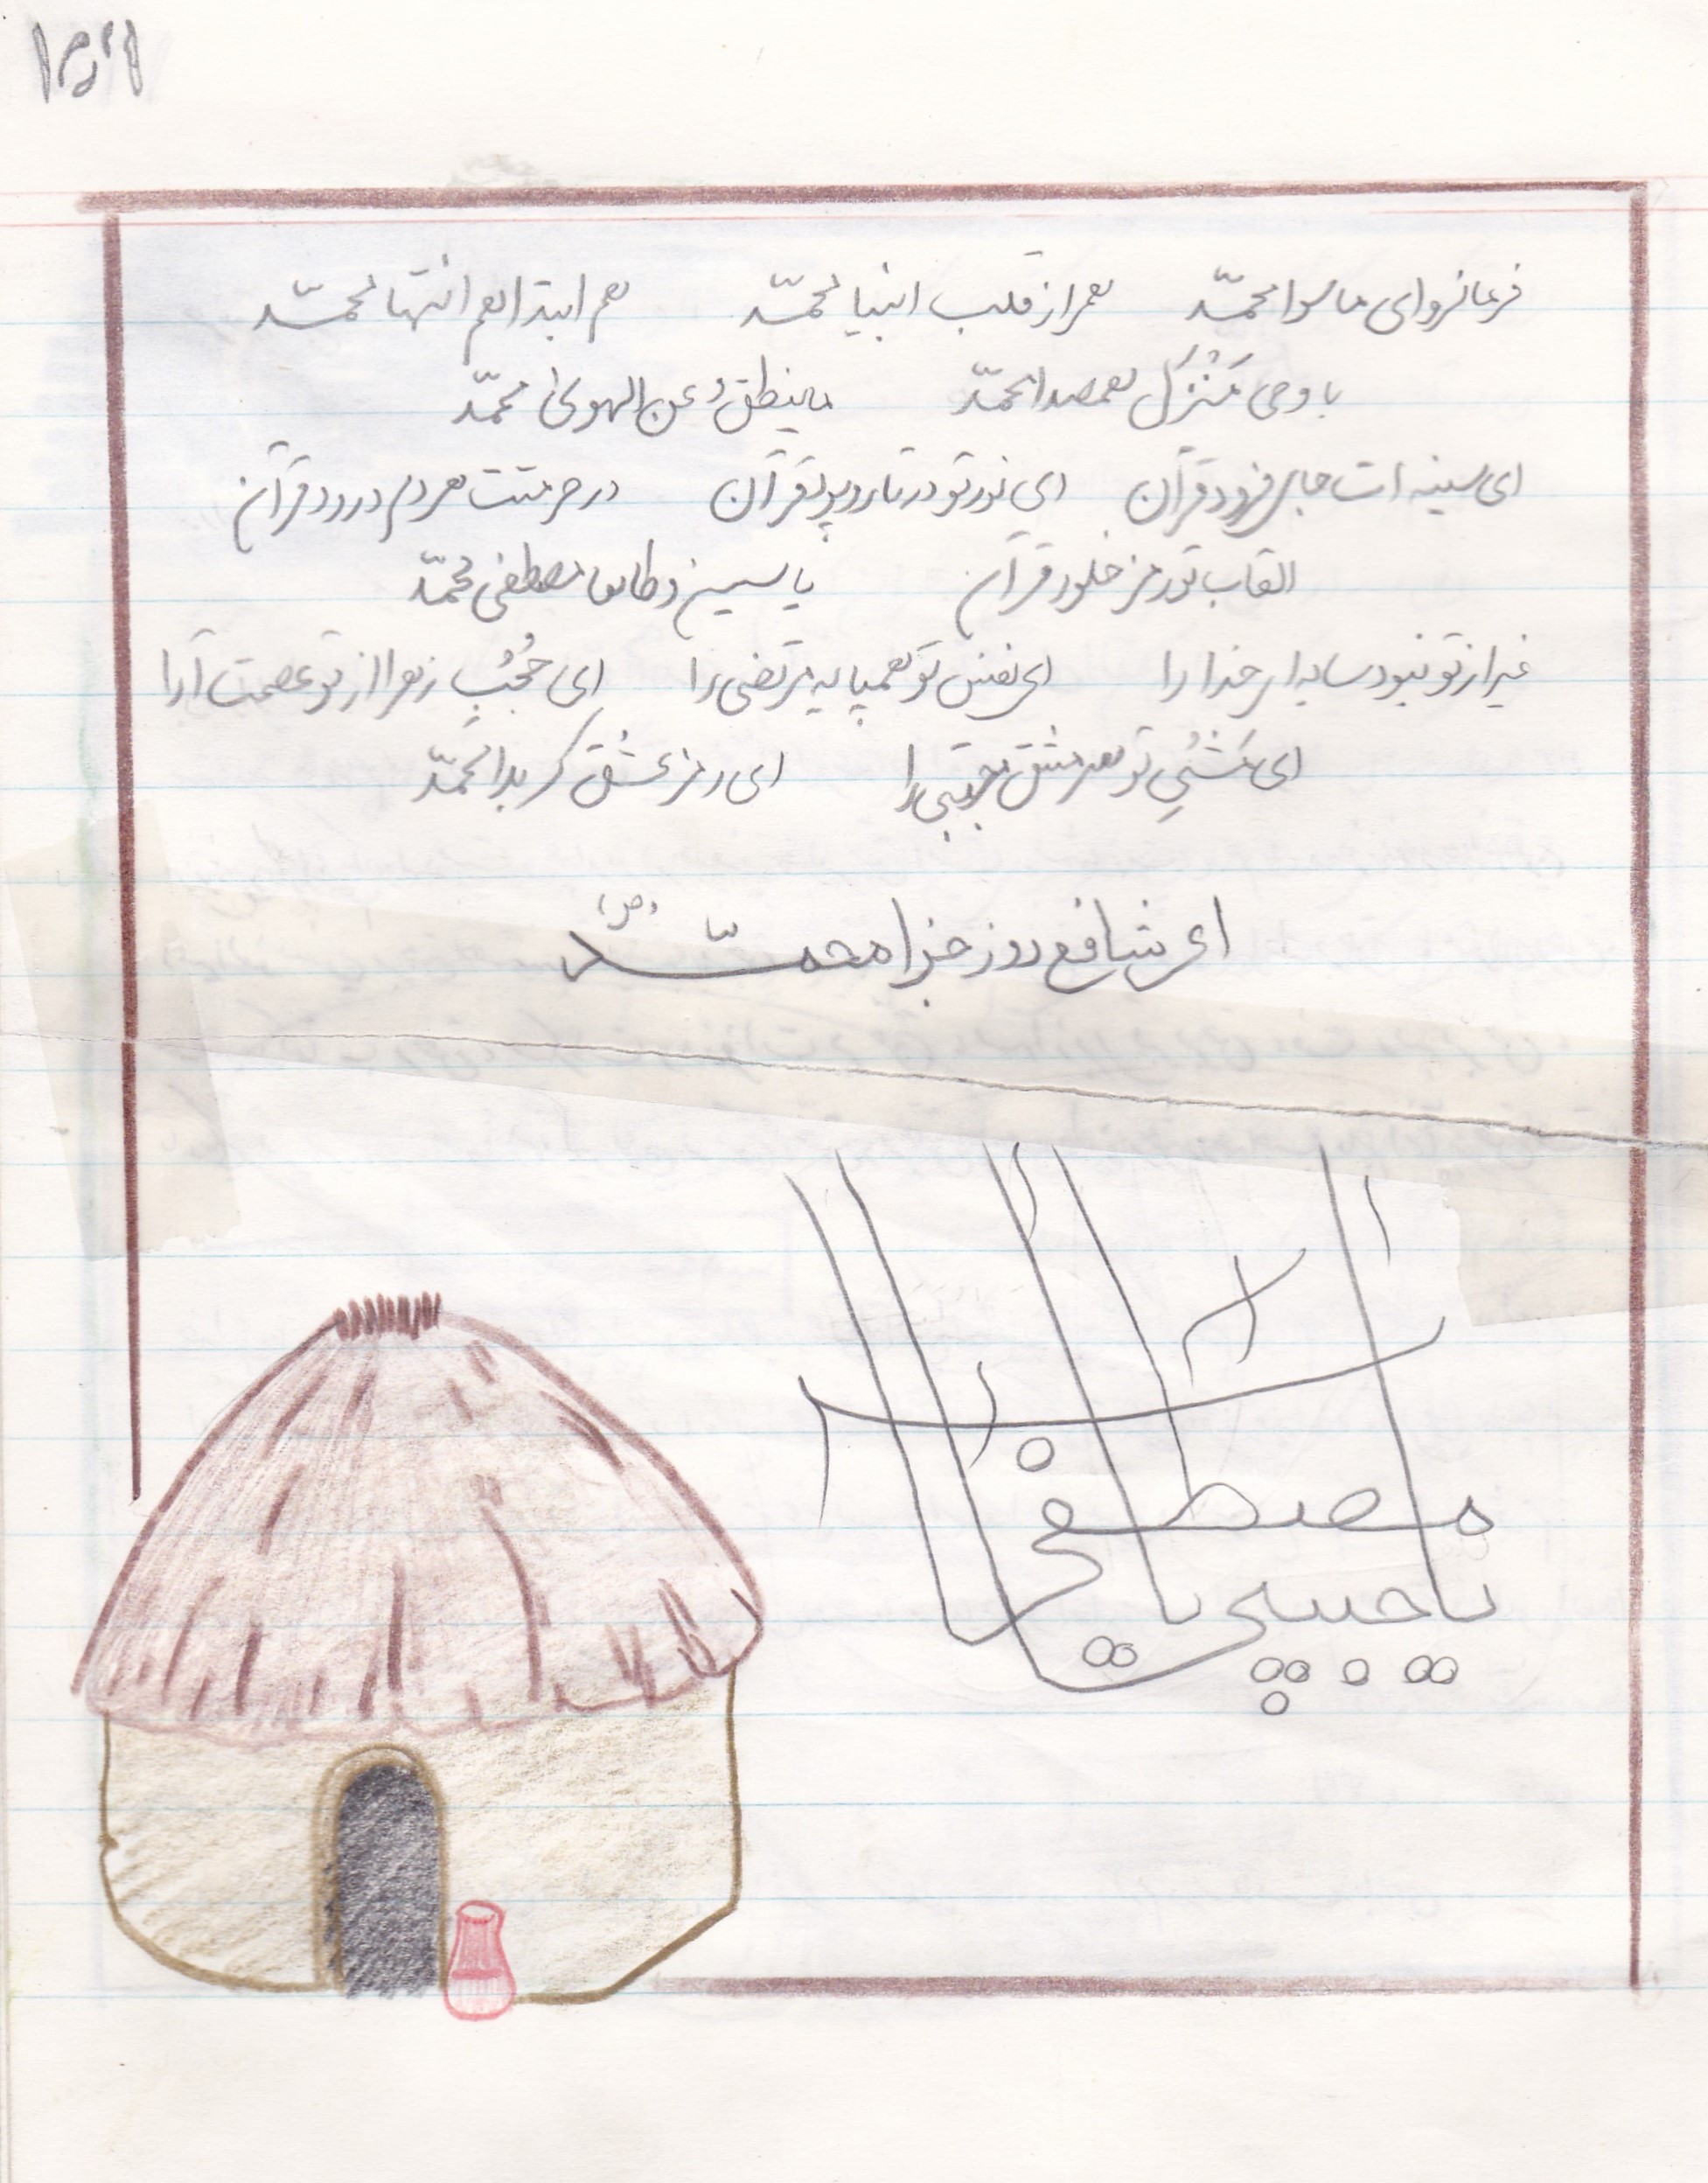 فرمانروای ماسوا محمّد همراز قلب انبیا محمّد هم ابتدا هم انتها محمّد
با وحی مُنْزَل همصدا محمّد ما ینطقُ عن الهوی محمّد
ای سینه ات جای فرود قرآن ای نور تو در تار و پود قرآن در حرمتت هر دم درود قرآن
القاب تو رمز خلود قرآن یاسین و طاها مصطفی محمّد
غیر از تو نبود سایه ای خدا را ای نفس تو همپایه مرتضی را ای حُجُبِ زهرا از تو عصمت آرا
ای مَشْیِ تو سرمشق مجتبی را ای رمز عشق کربلا محمّد
ای شافع روز جزا محمّد (ص)
مصطفی
یا حبیبی یا